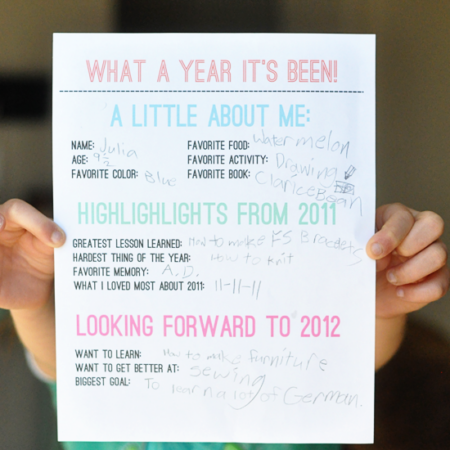 WHAT A YEAR IT'S BEEN!
A LITTLE ABOUT ME:
NAME: Julia
AGE: 9 1/2
FAVORITE COLOR: Blue
FAVORITE FOOD: Watermelon
FAVORITE ACTIVITY: Drawing
FAVORITE BOOK: Clarice Bean
HIGHLIGHLIGHTS FROM 2011
GREATEST LESSON LEARNED: How to make FS Bracelets
HARDEST THING OF THE YEAR: How to knit
FAVORITE MEMORY: A.D.
WHAT I LOVED MOST ABOUT 2011: 11-11-11
LOOKING FORWARD TO 2012
WANT TO LEARN: How to make furniture
WANT TO GET BETTER AT: sewing
BIGGEST GOAL: To learn a lot of German.